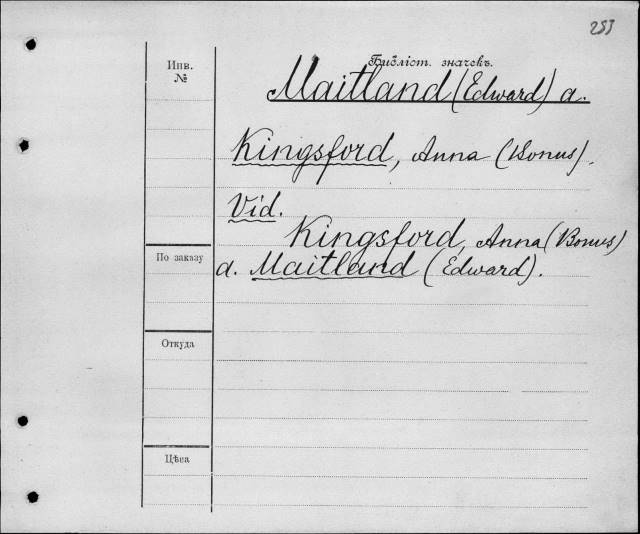 253
Инв.
№
Библіот. значекъ.
Maitland (Edward) a.
Kingsford, Anna (Bonus).
Vid.
Kingsford, Anna (Bonus)
По заказу
a. Maitland (Edward).
Откуда
Цѣна